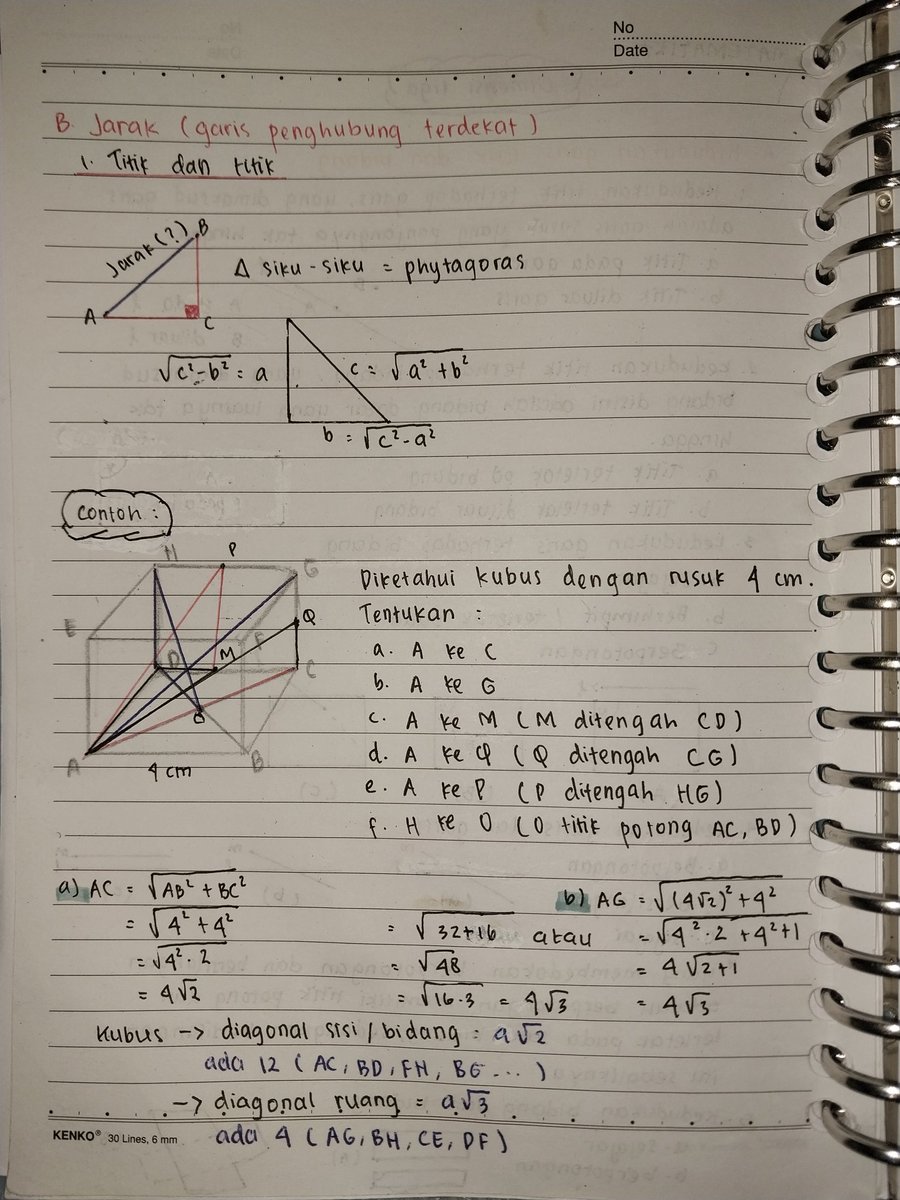 No
Date
B. Jarak (garis penghubung terdekat)
1. Titik dan titik
Jarak (?)
B
A
C
Δ siku-siku = phytagoras
√c²-b² = a
c = √a²+b²
b = √c²-a²
Contoh :
H P G
E F Q
D M C
O
A B
4 cm
Diketahui kubus dengan rusuk 4 cm.
Tentukan :
a. A ke C
b. A ke G
c. A ke M (M ditengah CD)
d. A ke Q (Q ditengah CG)
e. A ke P (P ditengah HG)
f. H ke O (O titik potong AC, BD)
a) AC = √AB² + BC²
= √4² + 4²
= √4² · 2
= 4√2
b) AG = √(4√2)² + 4²
= √32+16 atau = √4² · 2 + 4² + 1
= √48 = 4√2+1
= √16·3 = 4√3 = 4√3
Kubus → diagonal sisi / bidang = a√2
ada 12 (AC, BD, FH, BG ... )
→ diagonal ruang = a√3
ada 4 (AG, BH, CE, DF)
KENKO® 30 Lines, 6 mm